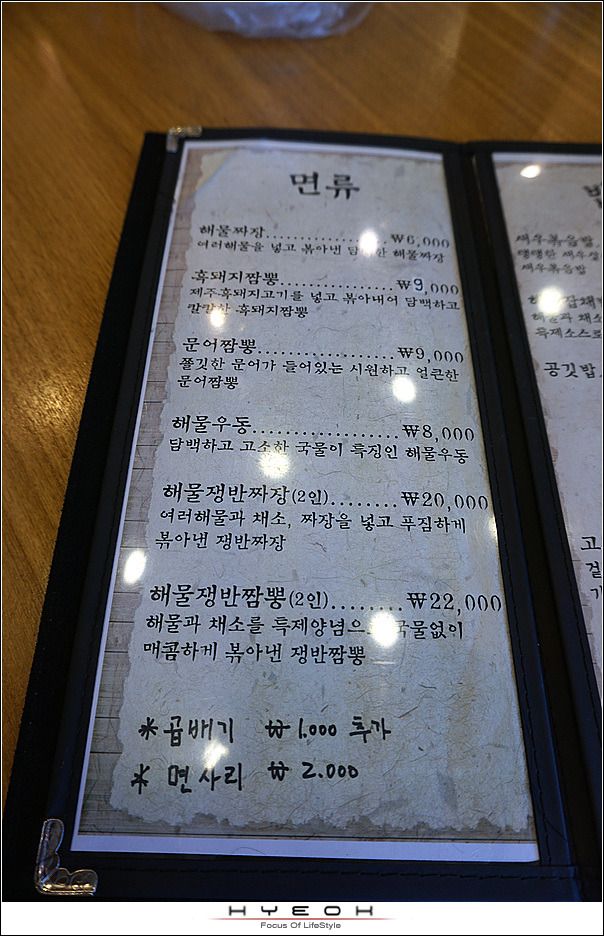 면류
해물짜장 ₩6,000
여러해물을 넣고 볶아낸 해물짜장
흑돼지짬뽕 ₩9,000
제주흑돼지고기를 넣고 볶아내어 담백하고
칼칼한 흑돼지짬뽕
문어짬뽕 ₩9,000
쫄깃한 문어가 들어있는 시원하고 얼큰한
문어짬뽕
해물우동 ₩8,000
담백하고 고소한 국물이 특징인 해물우동
해물쟁반짜장(2인) ₩20,000
여러해물과 채소, 짜장을 넣고 푸짐하게
볶아낸 쟁반짜장
해물쟁반짬뽕(2인) ₩22,000
해물과 채소를 특제양념으로 국물없이
매콤하게 볶아낸 쟁반짬뽕
*곱배기 ₩1.000 추가
* 면사리 ₩2.000
새우볶음밥
탱탱한
새우볶음밥
해물과 채소
특제소스로
공깃밥
HYEOH
Focus Of LifeStyle